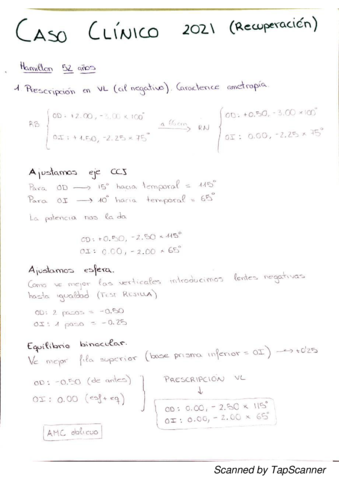 CASO CLÍNICO 2021 (Recuperación)
Hamilton 52 años
1 Prescripción en VL (cil negativo). Caracterice ametropía
RB OD: +2.00, -3.00 x 100° RN OD: +0.50, -3.00 x 100°
OI: +1.50, -2.25 x 75° OI: 0.00, -2.25 x 75°
Ajustamos eje CCJ
Para OD → 15° hacia temporal = 115°
Para OI → 10° hacia temporal = 65°
La potencia nos la da
OD: +0.50, -2.50 x 115°
OI: 0.00, -2.00 x 65°
Ajustamos esfera.
Como ve mejor las verticales introducimos lentes negativas
hasta igualdad (TEST REJILLA)
OD: 2 pasos = -0.50
OI: 1 paso = -0.25
Equilibrio binocular.
Ve mejor fila superior (base prisma inferior = OI) → +0.25
OD: -0.50 (de antes)
OI: 0.00 (esf + eq)
PRESCRIPCIÓN VL
OD: 0.00, -2.50 x 115°
OI: 0.00, -2.00 x 65°
AMC oblicuo
Scanned by TapScanner